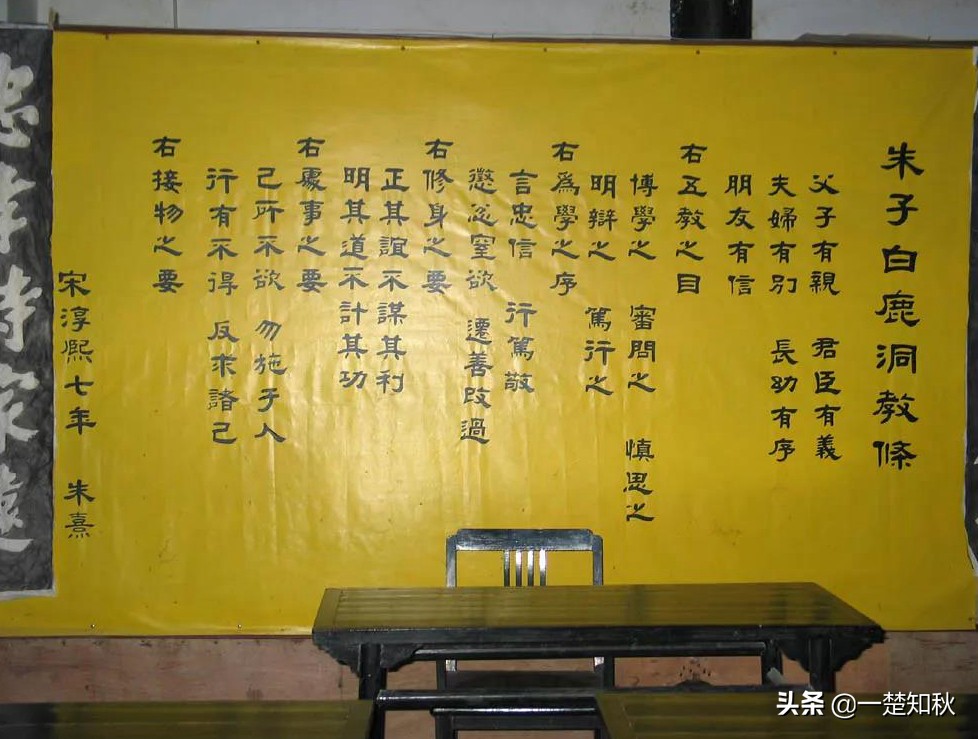 朱子白鹿洞教條
父子有親 君臣有義
夫婦有別 長幼有序
朋友有信
右五教之目
博學之 審問之 慎思之
明辯之 篤行之
右為學之序
言忠信 行篤敬
懲忿窒欲 遷善改過
右修身之要
正其誼不謀其利
明其道不計其功
右處事之要
己所不欲 勿施于人
行有不得 反求諸己
右接物之要
宋淳熙七年 朱熹
头条 @一楚知秋